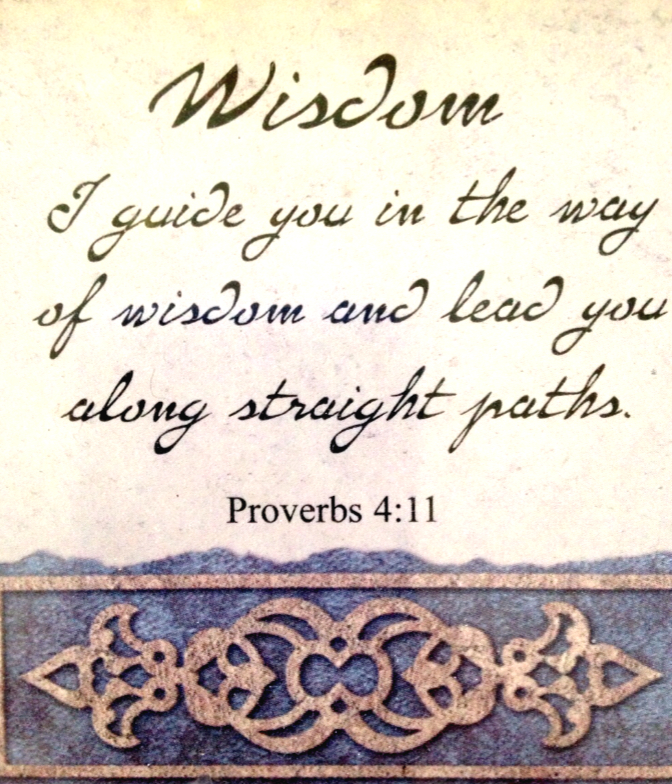 Wisdom
I guide you in the way
of wisdom and lead you
along straight paths.
Proverbs 4:11